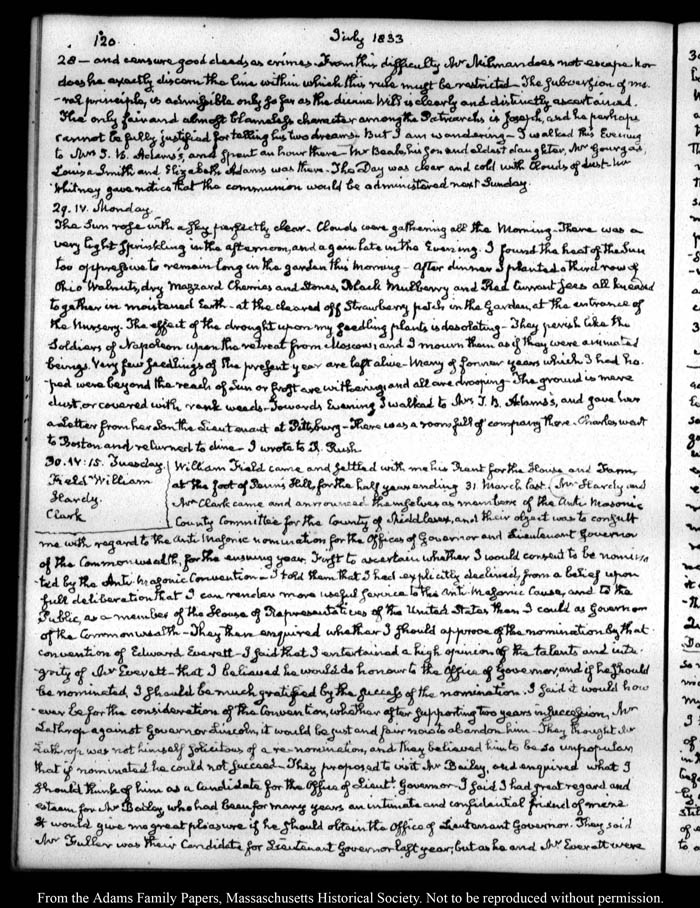 120.
July 1833
28 — and censure good deeds as crimes. From this difficulty Mr Milman does not escape nor
does he exactly discern the line within which this rule must be restricted — The subversion of mo-
-ral principle, is admissible only so far as the divine Will is clearly and distinctly ascertained.
The only fair and almost blameless character among the Patriarchs is Joseph, and he perhaps
cannot be fully justified for telling his two dreams. But I am wandering — I walked this Evening
to Mrs T. B. Adams's, and spent an hour there — Mr Beale, his son and eldest daughter, Mr Gourgas,
Louisa Smith and Elizabeth Adams was there — The Day was clear and cold with Clouds of dust. Mr
Whitney gave notice that the communion would be administered next Sunday.
29. IV. Monday.
The Sun rose with a sky perfectly clear — Clouds were gathering all the Morning — There was a
very light sprinkling in the afternoon, and again late in the Evening. I found the heat of the Sun
too oppressive to remain long in the garden this Morning — After dinner I planted a third row of
Ohio Walnuts, dry Mazzard Cherries and Stones, Black Mulberry and Red Currant seeds all kneaded
together in moistened Earth — at the cleared off Strawberry patch in the Garden, at the entrance of
the Nursery. The effect of the drought upon my seedling plants is desolating — They perish like the
Soldiers of Napoleon upon the retreat from Moscow, and I mourn them as if they were animated
beings. Very few seedlings of the present year are left alive — Many of former years which I had ho-
-ped were beyond the reach of Sun or frost are withering and all are drooping — The ground is mere
dust, or covered with rank weeds — Towards Evening I walked to Mrs T. B. Adams's, and gave her
a Letter from her Son the Lieutenant at Pittsburg — There was a room full of company there. Charles went
to Boston and returned to dine — I wrote to R. Rush
30. IV: 15. Tuesday.
Field William
Hardy.
Clark
William Field came and settled with me his Rent for the House and Farm,
at the foot of Penn's Hill, for the half year ending 31 March last. Mr Hardy and
Mr Clark came and announced themselves as members of the Anti Masonic
County Committee for the County of Middlesex, and their object was to consult
me with regard to the Anti Masonic nomination for the Offices of Governor and Lieutenant Governor
of the Commonwealth, for the ensuing year. First to ascertain whether I would consent to be nomina-
ted by the Anti-Masonic Convention — I told them that I had explicitly declined, from a belief upon
full deliberation that I can render more useful service to the Anti-Masonic Cause, and to the
Public, as a member of the House of Representatives of the United States than I could as Governor
of the Commonwealth — They then enquired whether I should approve of the nomination by that
convention of Edward Everett — I said that I entertained a high opinion of the talents and inte-
-grity of Mr Everett — that I believed he would do honour to the Office of Governor, and if he should
be nominated, I should be much gratified by the success of the nomination. I said it would how-
-ever be for the consideration of the Convention, whether after supporting two years in succession, Mr
Lathrop against Governor Lincoln, it would be just and fair now to abandon him — They thought Mr
Lathrop was not himself solicitous of a re-nomination, and they believed him to be so unpopular
that if nominated he could not succeed — They proposed to visit Mr Bailey, and enquired what I
should think of him as a Candidate for the Office of Lieutt. Governor — I said I had great regard and
esteem for Mr Bailey, who had been for many years an intimate and confidential friend of mine
It would give me great pleasure if he should obtain the Office of Lieutenant Governor. They said
Mr Fuller was their Candidate for Lieutenant Governor last year; but as he and Mr Everett were
From the Adams Family Papers, Massachusetts Historical Society. Not to be reproduced without permission.